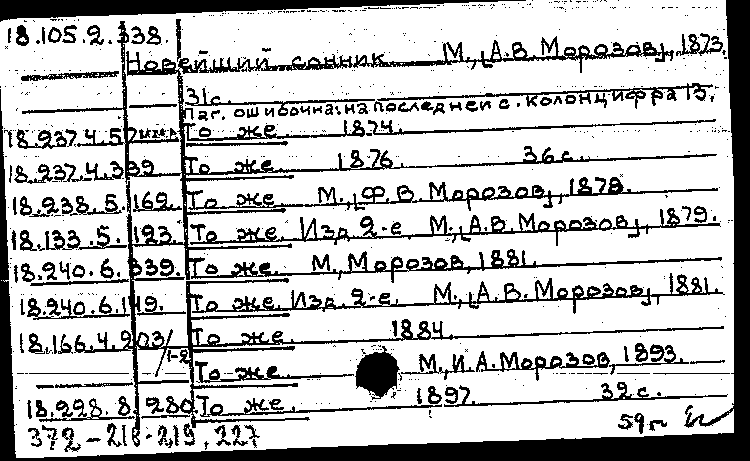 18.105.2.338.
Новейший сонник М., [А.В. Морозов], 1873.
31с.
Паг. ошибочна: на последней с. колонцифра 13.
18.237.4.57 То же. 1874.
18.237.4.339 То же. 1876. 36с.
18.238.5.162. То же. М., [Ф.В. Морозов], 1878.
18.133.5.123. То же. Изд. 2-е. М., [А.В. Морозов], 1879.
18.240.6.339. То же. М., Морозов, 1881.
18.240.6.149. То же. Изд. 2-е. М., [А.В. Морозов], 1881.
18.166.4.203/1-2 То же. 1884.
То же. М., И.А. Морозов, 1893.
18.228.8.280 То же. 1897. 32с.
59г
372-218-219, 227